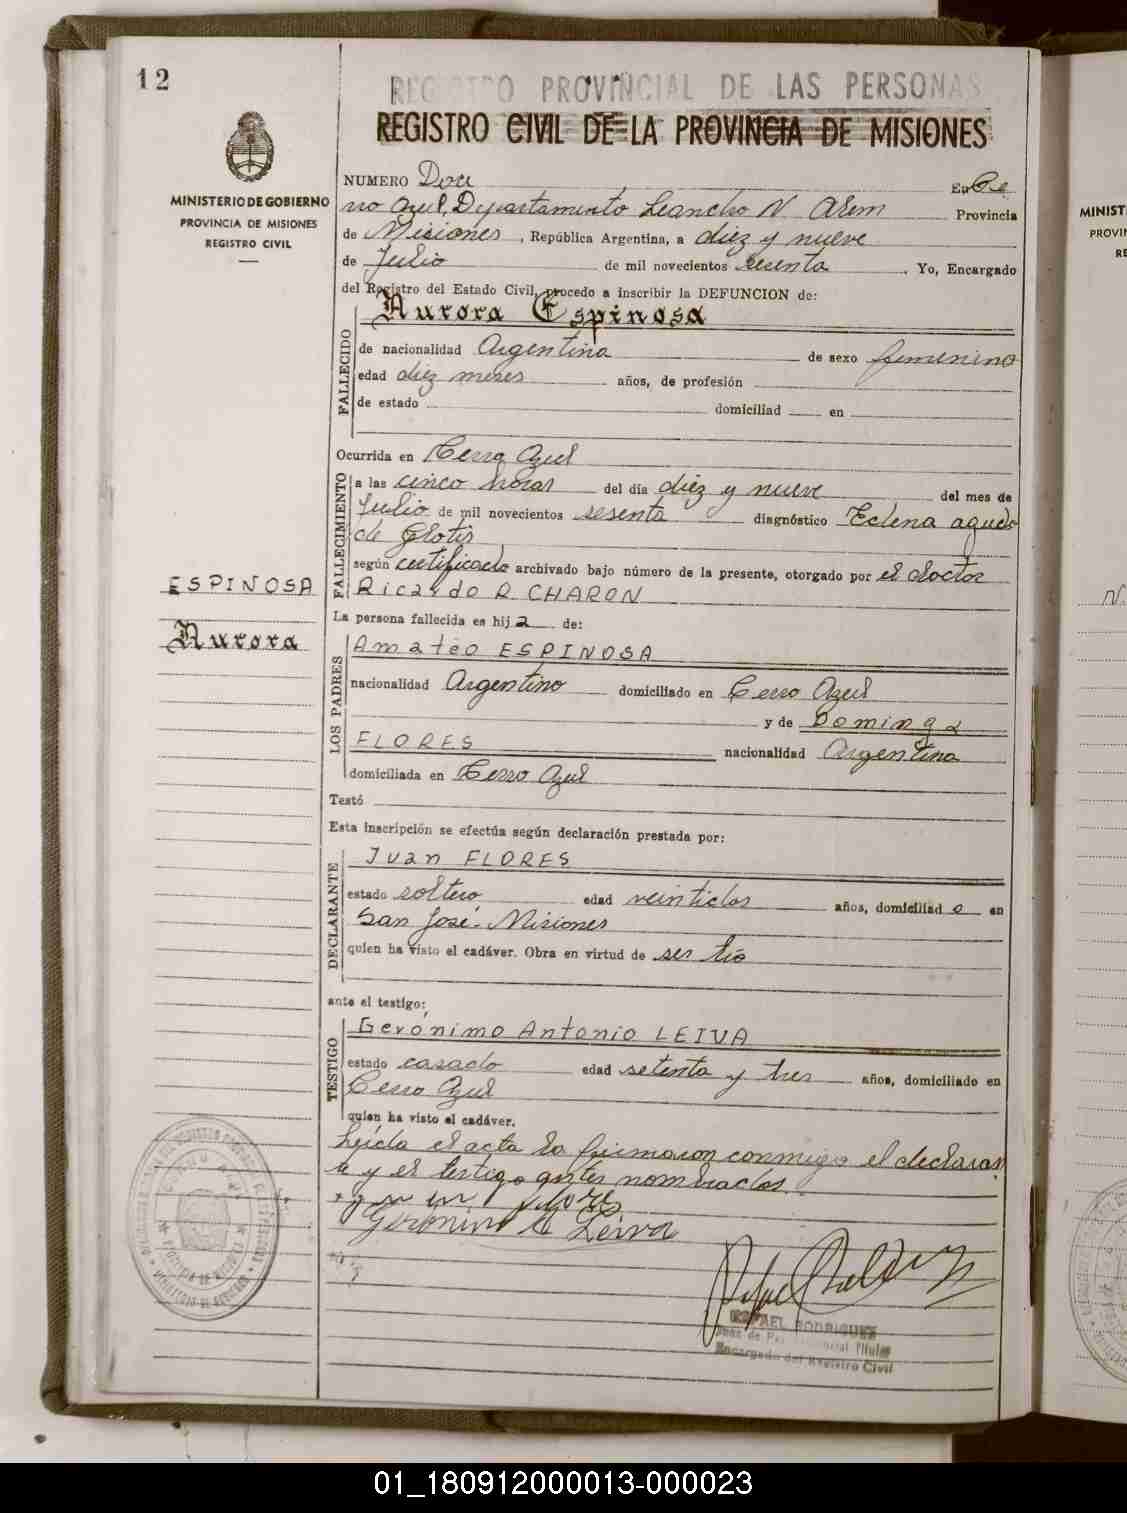 12
REGISTRO PROVINCIAL DE LAS PERSONAS
REGISTRO CIVIL DE LA PROVINCIA DE MISIONES
MINISTERIO DE GOBIERNO
PROVINCIA DE MISIONES
REGISTRO CIVIL
NUMERO Doce En Ce
rro Azul, Departamento Leandro N Alem Provincia
de Misiones, República Argentina, a diez y nueve
de Julio de mil novecientos sesenta. Yo, Encargado
del Registro del Estado Civil, procedo a inscribir la DEFUNCION de:
Aurora Espinosa
FALLECIDO
de nacionalidad Argentina de sexo femenino
edad diez meses años, de profesión
de estado domiciliad en
Ocurrida en Cerro Azul
FALLECIMIENTO
a las cinco horas del día diez y nueve del mes de
Julio de mil novecientos sesenta diagnóstico Edena agudo
de Glotis
según certificado archivado bajo número de la presente, otorgado por el doctor
Ricardo R CHARON
ESPINOSA
Aurora
La persona fallecida es hija de:
LOS PADRES
Amateo ESPINOSA
nacionalidad Argentino domiciliado en Cerro Azul
y de Dominga
FLORES nacionalidad Argentina
domiciliada en Cerro Azul
Testó
Esta inscripción se efectúa según declaración prestada por:
DECLARANTE
Juan FLORES
estado soltero edad veintidos años, domiciliado en
San José - Misiones
quien ha visto el cadáver. Obra en virtud de ser tío
ante el testigo:
TESTIGO
Gerónimo Antonio LEIVA
estado casado edad setenta y tres años, domiciliado en
Cerro Azul
quien ha visto el cadáver.
Leída el acta la firmaron conmigo el declaran
te y el testigo antes nombrados.
Juan Flores
Gerónimo A Leiva
RAFAEL RODRIGUEZ
Juez de Paz Titular
Encargado del Registro Civil
MINIST
PROVIN
RE
N.
01_180912000013-000023